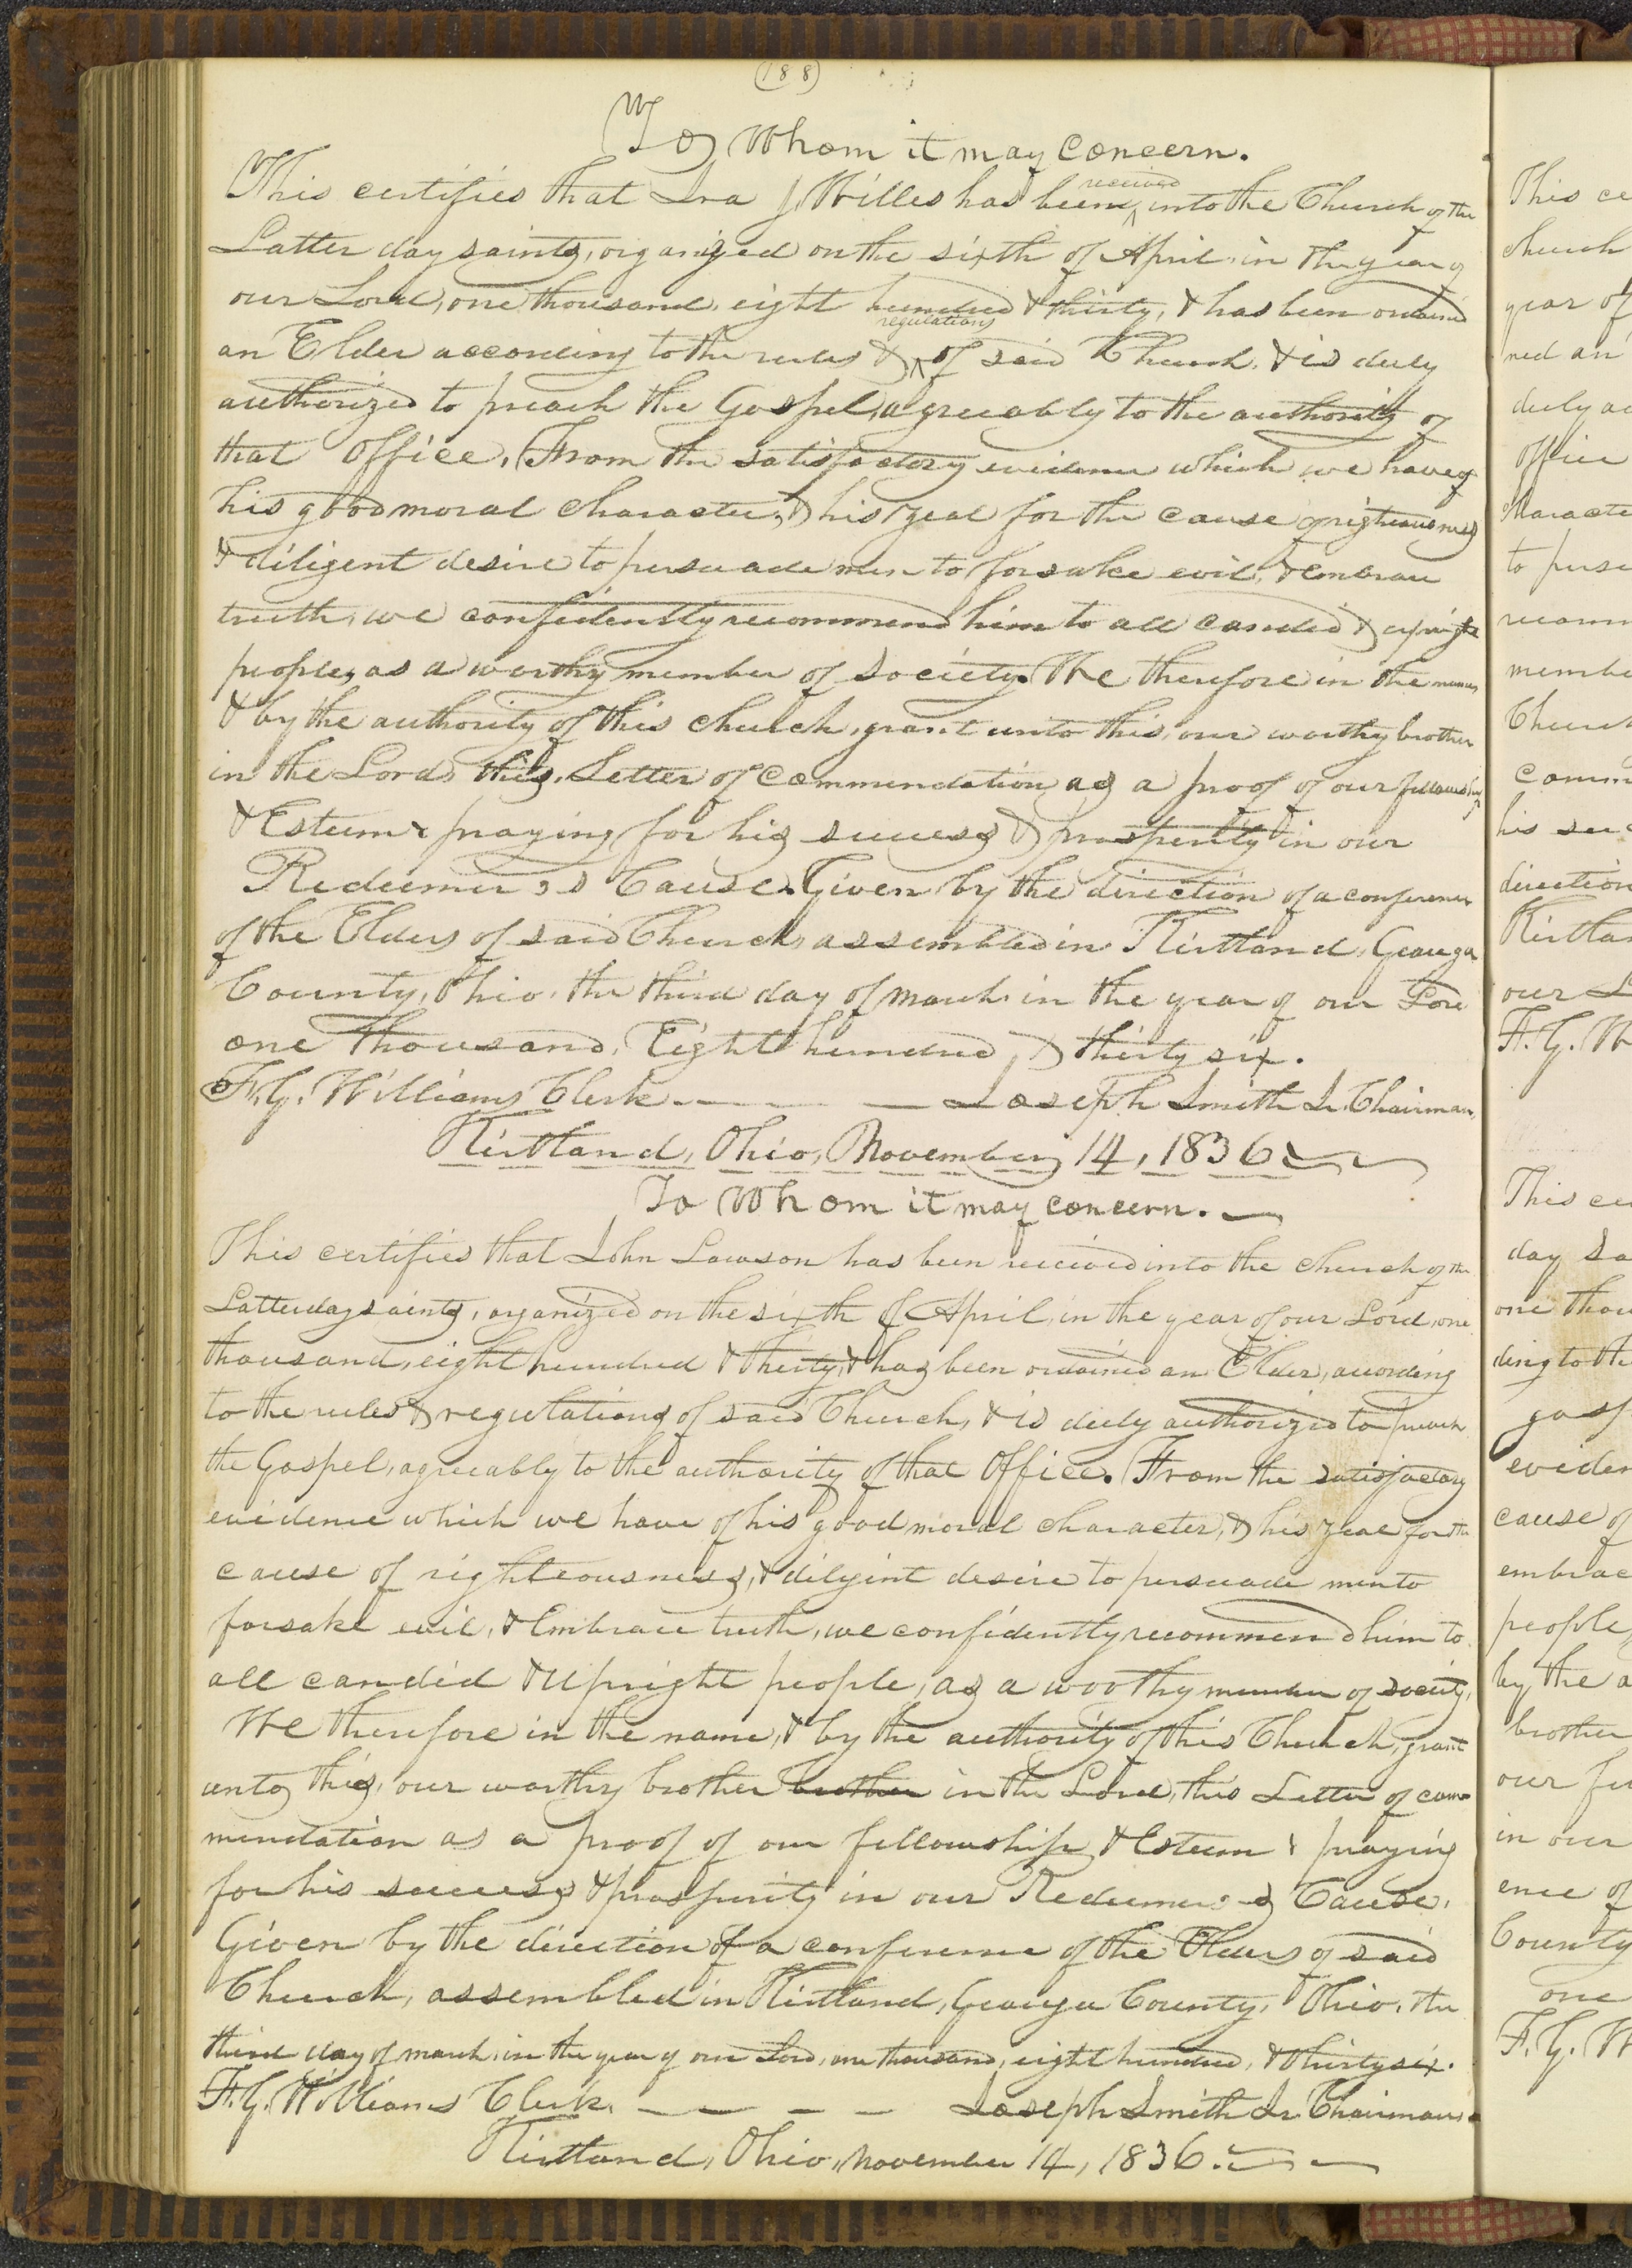 (188)
To Whom it may concern.
This certifies that Ira J. Willes has been received into the Church of the
Latter day saints, organized on the sixth of April, in the year of
our Lord, one thousand, eight hundred & thirty, & has been ordained
an Elder according to the rules & regulations of said Church, & is duly
authorized to preach the Gospel, agreeably to the authority of
that Office. From the satisfactory evidence which we have of
his good moral character, & his zeal for the cause of righteousness
& diligent desire to persuade men to forsake evil, & embrace
truth, we confidently recommend him to all candid & upright
people, as a worthy member of society. We therefore in the name
& by the authority of this church, grant unto this, our worthy brother
in the Lord, this, Letter of commendation as a proof of our fellowship
& Esteem: praying for his success & prosperity in our
Redeemer's Cause. Given by the direction of a conference
of the Elders of said Church, assembled in Kirtland, Geauga
County, Ohio, the third day of march, in the year of our Lord
one thousand, Eight hundred, & thirty six.
F. G. Williams Clerk. Joseph Smith Jr. Chairman,
Kirtland, Ohio, November 14, 1836
To Whom it may concern.
This certifies that John Lawson has been received into the church of the
Latter day saints, organized on the sixth of April, in the year of our Lord, one
thousand, eight hundred & thirty, & has been ordained an Elder, according
to the rules & regulations of said Church, & is duly authorized to preach
the Gospel, agreeably to the authority of that Office. From the satisfactory
evidence which we have of his good moral character, & his zeal for the
cause of righteousness, & diligint desire to persuade men to
forsake evil, & Embrace truth, we confidently recommend him to
all candid & Upright people, as a worthy member of society,
We therefore in the name, & by the authority of this Church, grant
unto this, our worthy brother brother in the Lord, this Letter of com-
mendation as a proof of our fellowship & Esteem: praying
for his success & prosperity in our Redeemer's Cause.
Given by the direction of a conference of the Elders of said
Church, assembled in Kirtland, Geauga County, Ohio, the
third day of march, in the year of our Lord, one thousand, eight hundred, & thirty six.
F. G. Williams Clerk. Joseph Smith Jr. Chairman.
Kirtland, Ohio, November 14, 1836.
This ce
church
year of
ned an
duly au
office
Characte
to persu
recomm
membe
Church
comm
his suc
direction
Kirtlan
our L
F. G. W
This cer
day sa
one thou
ding to the
gosp
eviden
cause of
embrac
people,
by the a
brother
our fel
in our
ence of
County
one
F. G. W